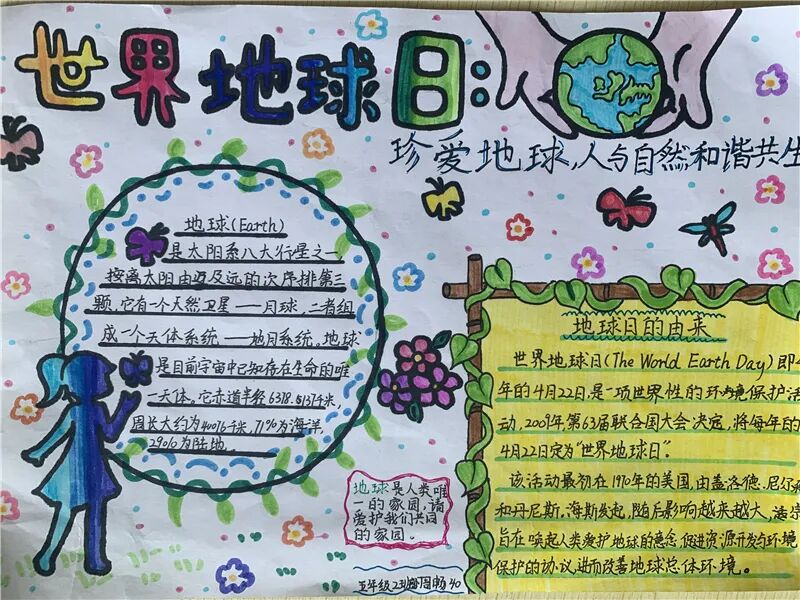 世界地球日:
珍爱地球,人与自然和谐共生
地球(Earth)
是太阳系八大行星之一
按离太阳由近及远的次序排第三
颗,它有一个天然卫星——月球,二者组
成一个天体系统——地月系统。地球
是目前宇宙中已知存在生命的唯
一天体。它赤道半径6378.137千米
周长大约为40076千米,71%为海洋
29%为陆地。
地球日的由来
世界地球日(The World Earth Day)即
年的4月22日,是一项世界性的环境保护活
动,2009年第63届联合国大会决定,将每年的
4月22日定为“世界地球日”。
该活动最初在1970年的美国,由盖洛德.尼尔
和丹尼斯.海斯发起,随后影响越来越大,活
旨在唤起人类爱护地球的意念,促进资源开发与环境
保护的协议,进而改善地球总体环境。
地球是人类唯
一的家园,请
爱护我们共同
的家园。
五年级2班 周畅 40